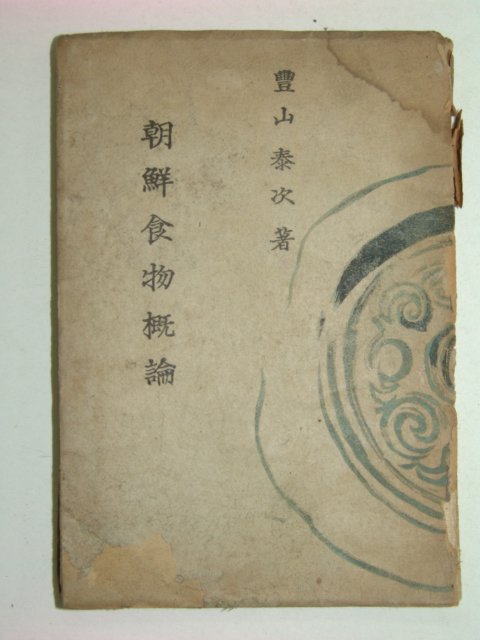 豐山泰次著
朝鮮食物槪論